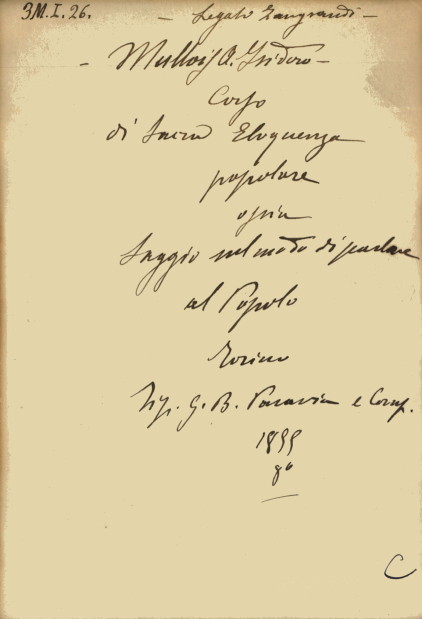 3M.I.26.
- Legato Zangrandi -
- Mullois A. Isidoro -
Corso
di Sacra Eloquenza
popolare
ossia
Saggio sul modo di parlare
al Popolo
Torino
Tip. G. B. Paravia e Comp.
1855
8º
C